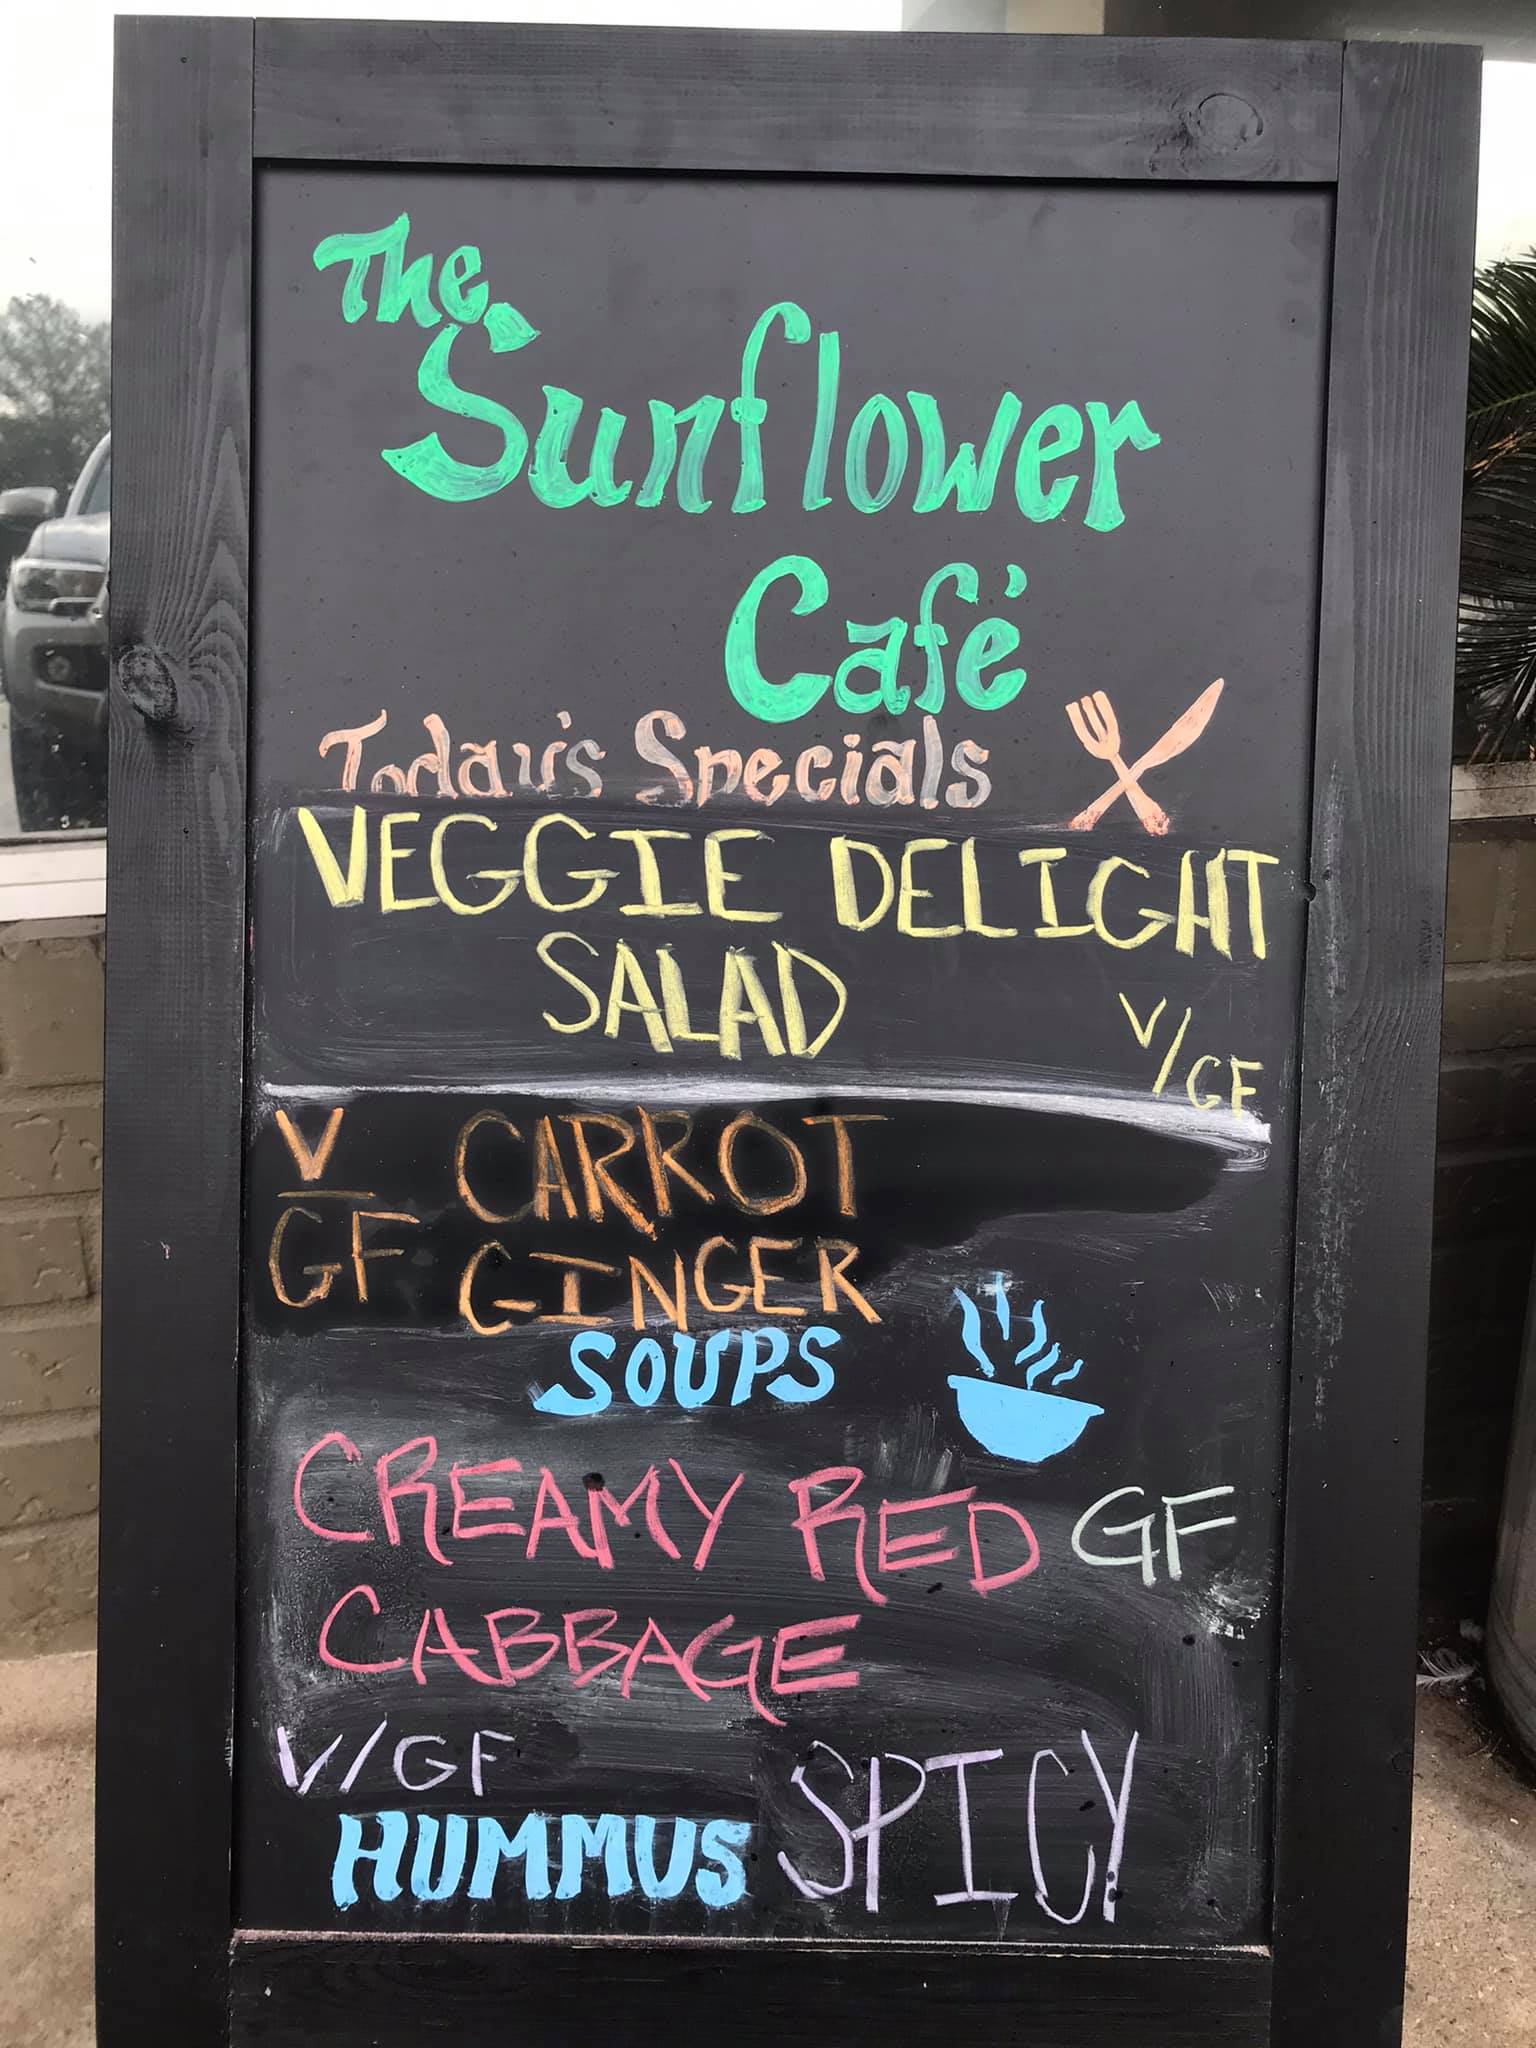 The
Sunflower
Café
Today's Specials
VEGGIE DELIGHT
SALAD
V/GF
V CARROT
GF GINGER
SOUPS
CREAMY RED GF
CABBAGE
V/GF
HUMMUS SPICY